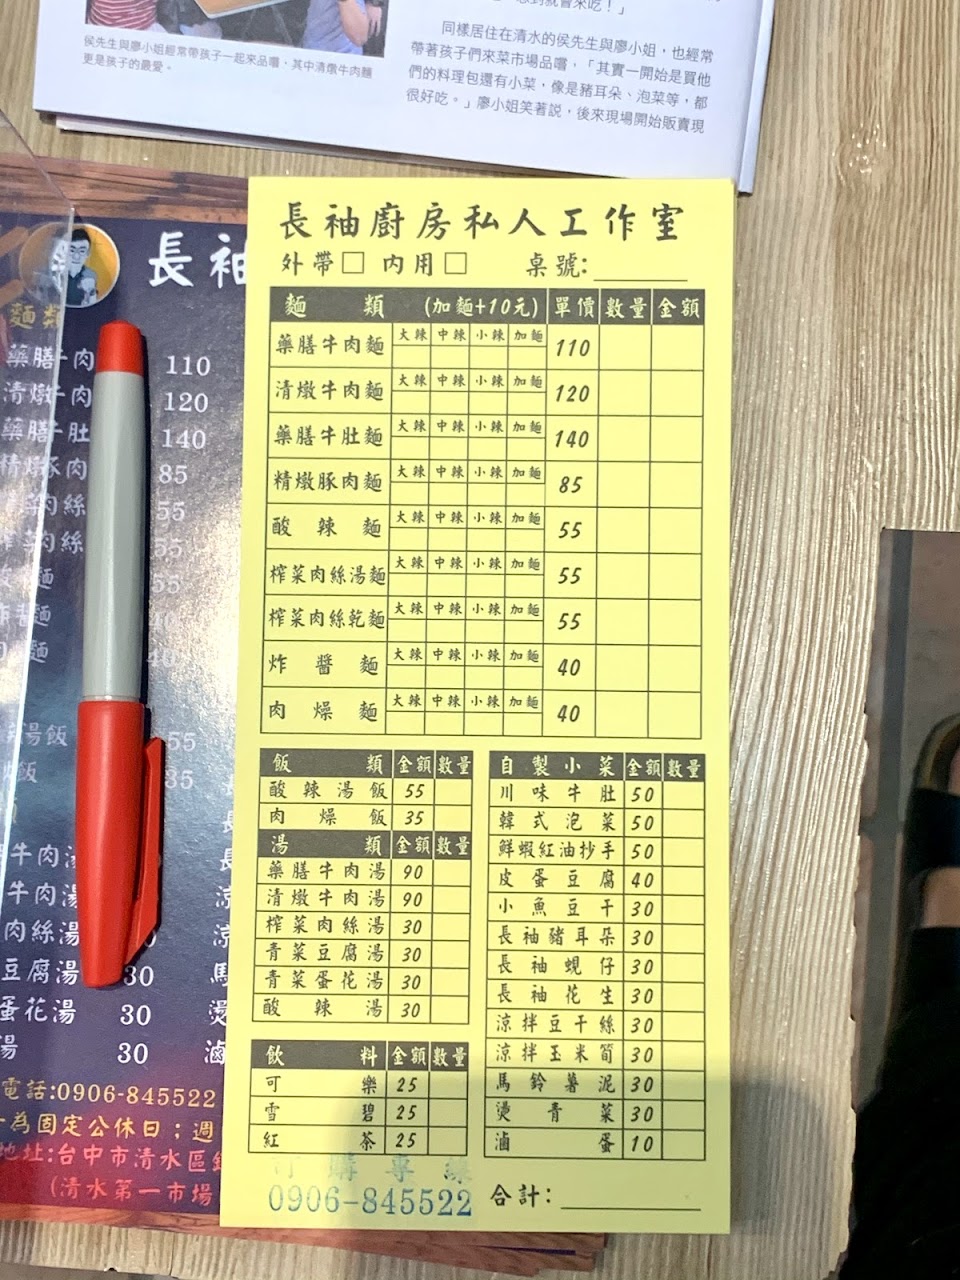 想到就會來吃！」
侯先生與廖小姐經常帶孩子一起來品嚐，其中清燉牛肉麵
更是孩子的最愛。
同樣居住在清水的侯先生與廖小姐，也經常
帶著孩子們來菜市場品嚐，「其實一開始是買他
們的料理包還有小菜，像是豬耳朵、泡菜等，都
很好吃。」廖小姐笑著說，後來現場開始販賣現
長袖廚房私人工作室
外帶□ 內用□ 桌號:
麵類 (加麵+10元) 單價 數量 金額
藥膳牛肉麵 大辣 中辣 小辣 加麵 110
清燉牛肉麵 大辣 中辣 小辣 加麵 120
藥膳牛肚麵 大辣 中辣 小辣 加麵 140
精燉豚肉麵 大辣 中辣 小辣 加麵 85
酸辣麵 大辣 中辣 小辣 加麵 55
榨菜肉絲湯麵 大辣 中辣 小辣 加麵 55
榨菜肉絲乾麵 大辣 中辣 小辣 加麵 55
炸醬麵 大辣 中辣 小辣 加麵 40
肉燥麵 大辣 中辣 小辣 加麵 40
飯類 金額 數量
酸辣湯飯 55
肉燥飯 35
湯類 金額 數量
藥膳牛肉湯 90
清燉牛肉湯 90
榨菜肉絲湯 30
青菜豆腐湯 30
青菜蛋花湯 30
酸辣湯 30
飲料 金額 數量
可樂 25
雪碧 25
紅茶 25
訂購專線
0906-845522
自製小菜 金額 數量
川味牛肚 50
韓式泡菜 50
鮮蝦紅油抄手 50
皮蛋豆腐 40
小魚豆干 30
長袖豬耳朵 30
長袖蜆仔 30
長袖花生 30
涼拌豆干絲 30
涼拌玉米筍 30
馬鈴薯泥 30
燙青菜 30
滷蛋 10
合計:
長袖
麵類
藥膳牛肉 110
清燉牛肉 120
藥膳牛肚 140
精燉豚肉 85
肉絲 55
肉絲 55
麵 55
醬麵 40
麵 40
湯飯 55
飯 35
牛肉湯
牛肉湯
肉絲湯
豆腐湯 30
蛋花湯 30
湯 30
長
涼
涼
馬
燙
滷
電話:0906-845522
為固定公休日；週
地址:台中市清水區
(清水第一市場